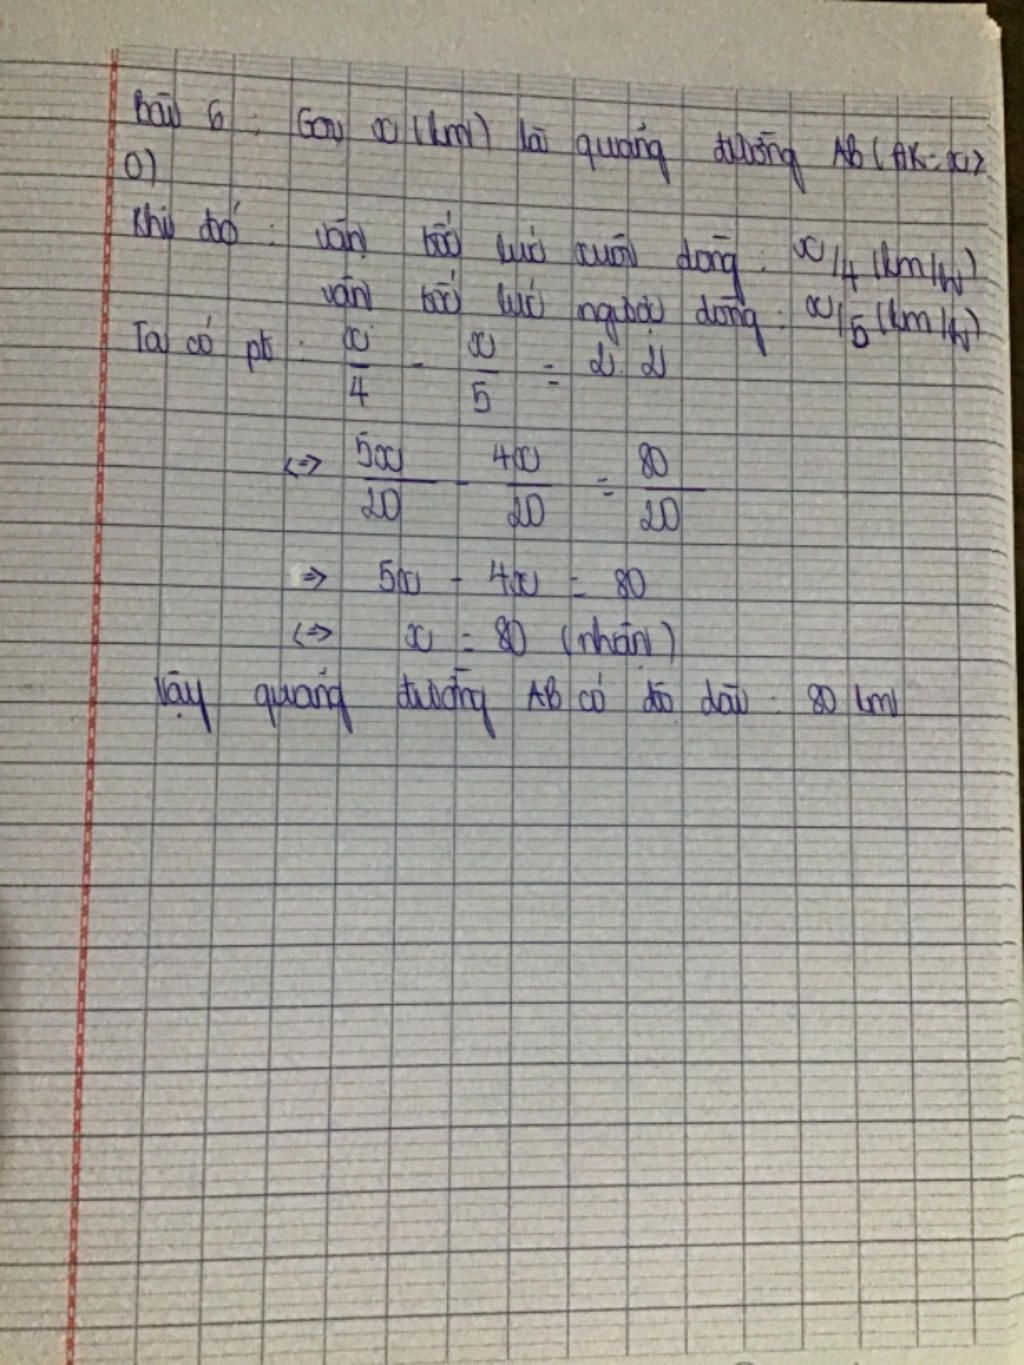 Bài 6 : Gọi x (km) là quãng đường AB (ĐK: x >
0)
Khi đó : vận tốc lúc xuôi dòng : x/4 (km/h)
vận tốc lúc ngược dòng : x/5 (km/h)
Ta có pt : x/4 - x/5 = 2.2
<=> 5x/20 - 4x/20 = 80/20
=> 5x - 4x = 80
<=> x = 80 (nhận)
Vậy quãng đường AB có độ dài : 80 km